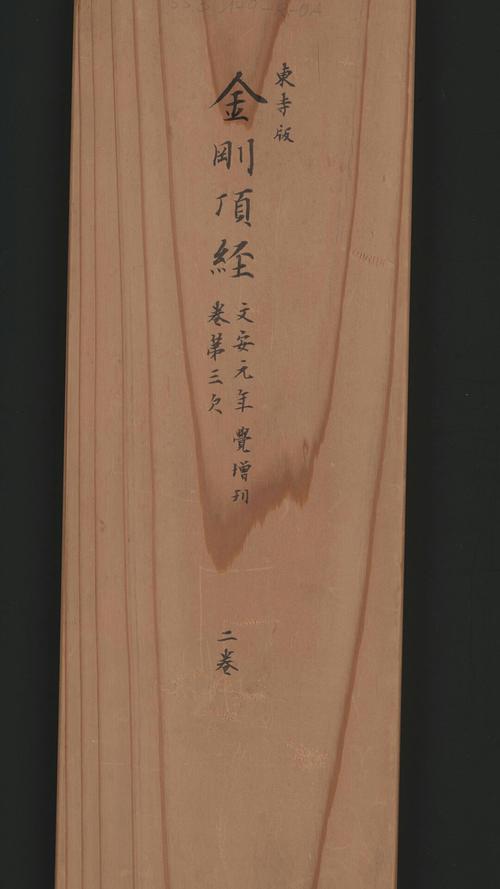 東寺版
金剛頂経
文安元年 覺增刊
卷第三欠
二卷